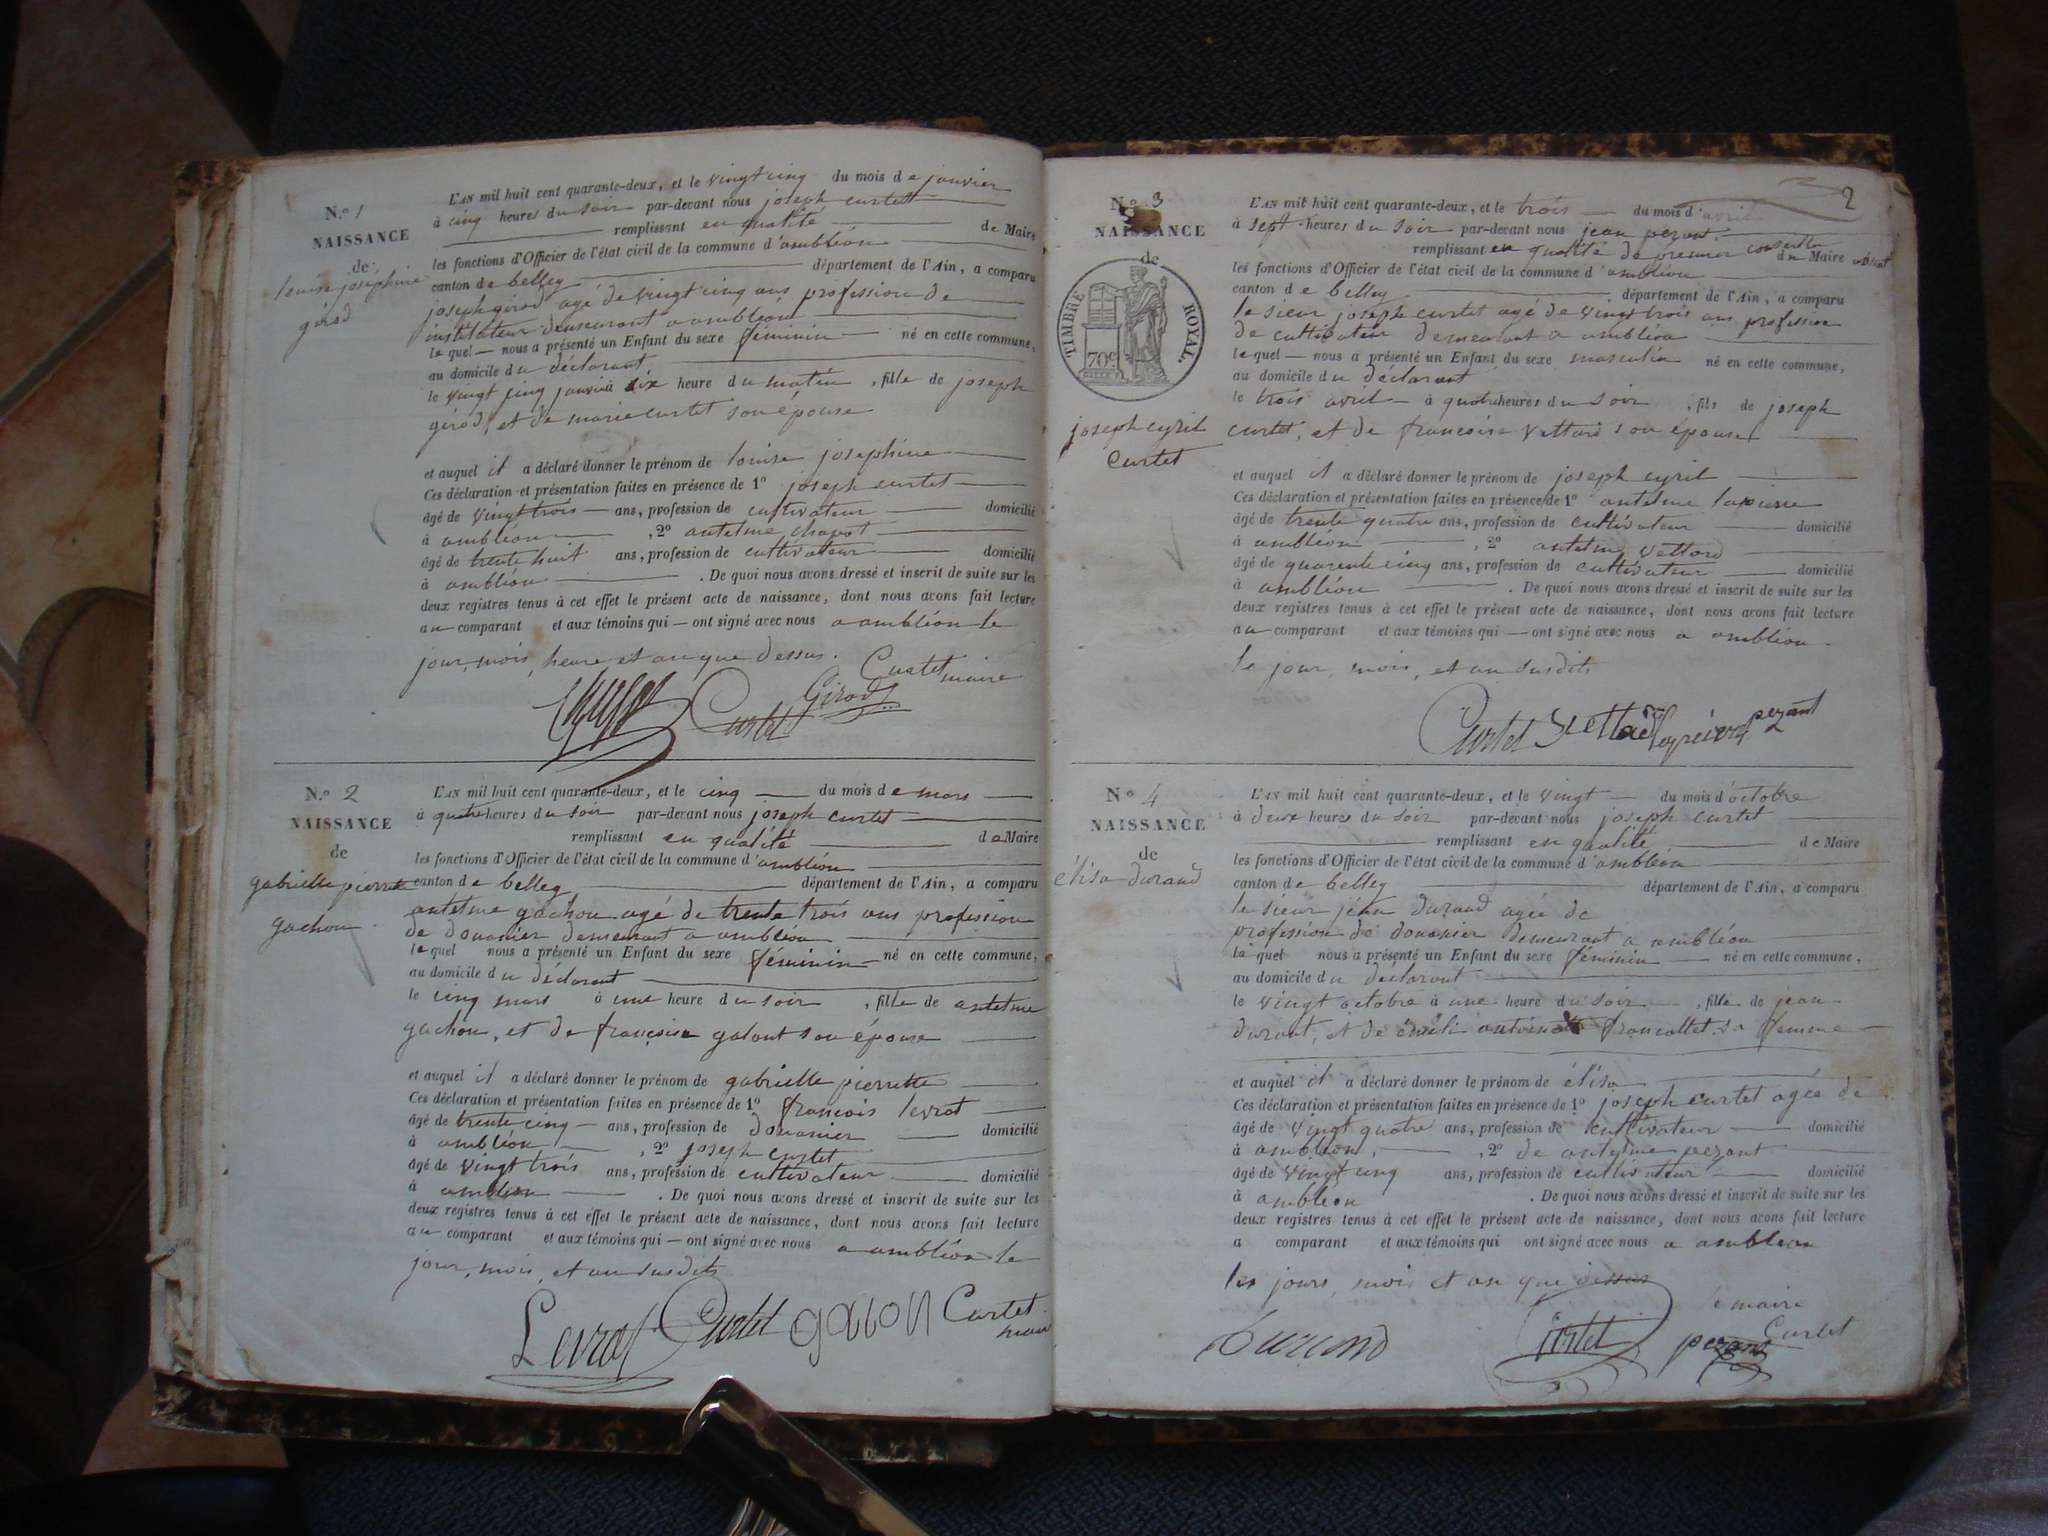 N.o 1
NAISSANCE
de
louise joséphine
girod
L'AN mil huit cent quarante-deux, et le vingt cinq du mois de janvier
à cinq heures du soir par-devant nous joseph curtet
remplissant en qualité de Maire
les fonctions d'Officier de l'état civil de la commune d'ambléon
canton de belley département de l'Ain, a comparu
joseph girod agé de vingt cinq ans profession de
instituteur demeurant a ambléon
lequel nous a présenté un Enfant du sexe féminin né en cette commune,
au domicile du déclarant
le vingt cinq janvier à six heure du matin, fille de joseph
girod, et de marie curtet son épouse
et auquel il a déclaré donner le prénom de louise josephine
Ces déclaration et présentation faites en présence de 1o joseph curtet
âgé de vingt trois ans, profession de cultivateur domicilié
à ambléon, 2o antelme chapot
âgé de trente huit ans, profession de cultivateur domicilié
à ambléon. De quoi nous avons dressé et inscrit de suite sur les
deux registres tenus à cet effet le présent acte de naissance, dont nous avons fait lecture
au comparant et aux témoins qui ont signé avec nous a ambléon le
jour, mois, heure et an que dessus.
Curtet maire
Girod
Curtet
N.o 2
NAISSANCE
de
gabrielle pierrette
gachon
L'AN mil huit cent quarante-deux, et le cinq du mois de mars
à quatre heures du soir par-devant nous joseph curtet
remplissant en qualité de Maire
les fonctions d'Officier de l'état civil de la commune d'ambléon
canton de belley département de l'Ain, a comparu
antelme gachon agé de trente trois ans profession
de douanier demeurant a ambléon
lequel nous a présenté un Enfant du sexe féminin né en cette commune,
au domicile du déclarant
le cinq mars à une heure du soir, fille de antelme
gachon, et de françoise galant son épouse
et auquel il a déclaré donner le prénom de gabrielle pierrette
Ces déclaration et présentation faites en présence de 1o francois levrat
âgé de trente cinq ans, profession de douanier domicilié
à ambléon, 2o joseph curtet
âgé de vingt trois ans, profession de cultivateur domicilié
à ambléon. De quoi nous avons dressé et inscrit de suite sur les
deux registres tenus à cet effet le présent acte de naissance, dont nous avons fait lecture
au comparant et aux témoins qui ont signé avec nous a ambléon le
jour, mois, et an susdits
Levrat Curtet Curtet
2
N.o 3
NAISSANCE
de
TIMBRE ROYAL.
70c
joseph cyril
curtet
L'AN mil huit cent quarante-deux, et le trois du mois d'avril
à sept heures du soir par-devant nous jean pezant
remplissant en qualité de premier conseiller du Maire
les fonctions d'Officier de l'état civil de la commune d'ambléon
canton de belley département de l'Ain, a comparu
le sieur joseph curtet agé de vingt trois ans profession
de cultivateur demeurant a ambléon
lequel nous a présenté un Enfant du sexe masculin né en cette commune,
au domicile du déclarant
le trois avril à quatre heures du soir, fils de joseph
curtet, et de francoise vettard son épouse
et auquel il a déclaré donner le prénom de joseph cyril
Ces déclaration et présentation faites en présence de 1o antelme lapierre
âgé de trente quatre ans, profession de cultivateur domicilié
à ambléon, 2o antelme vettard
âgé de quarente cinq ans, profession de cultivateur domicilié
à ambléon. De quoi nous avons dressé et inscrit de suite sur les
deux registres tenus à cet effet le présent acte de naissance, dont nous avons fait lecture
au comparant et aux témoins qui ont signé avec nous a ambléon.
le jour, mois, et an susdits
Curtet pezant
No 4
NAISSANCE
de
élisa durand
L'AN mil huit cent quarante-deux, et le vingt du mois d'octobre
à deux heures du soir par-devant nous joseph curtet
remplissant en qualité de Maire
les fonctions d'Officier de l'état civil de la commune d'ambléon
canton de belley département de l'Ain, a comparu
le sieur jéan durand agée de
profession de douanier demeurant a ambléon
lequel nous a présenté un Enfant du sexe féminin né en cette commune,
au domicile du declarant
le vingt octobre à une heure du soir, fille de jean
durant, et de sa femme
et auquel il a déclaré donner le prénom de élisa
Ces déclaration et présentation faites en présence de 1o joseph curtet agée de
âgé de vingt quatre ans, profession de cultivateur domicilié
à ambléon, 2o de antelme pezant
âgé de vingt cinq ans, profession de cultivateur domicilié
à ambléon. De quoi nous avons dressé et inscrit de suite sur les
deux registres tenus à cet effet le présent acte de naissance, dont nous avons fait lecture
a comparant et aux témoins qui ont signé avec nous a ambleon
les jours, mois et an que dessus
maire
Durand Curtet pezant Curtet